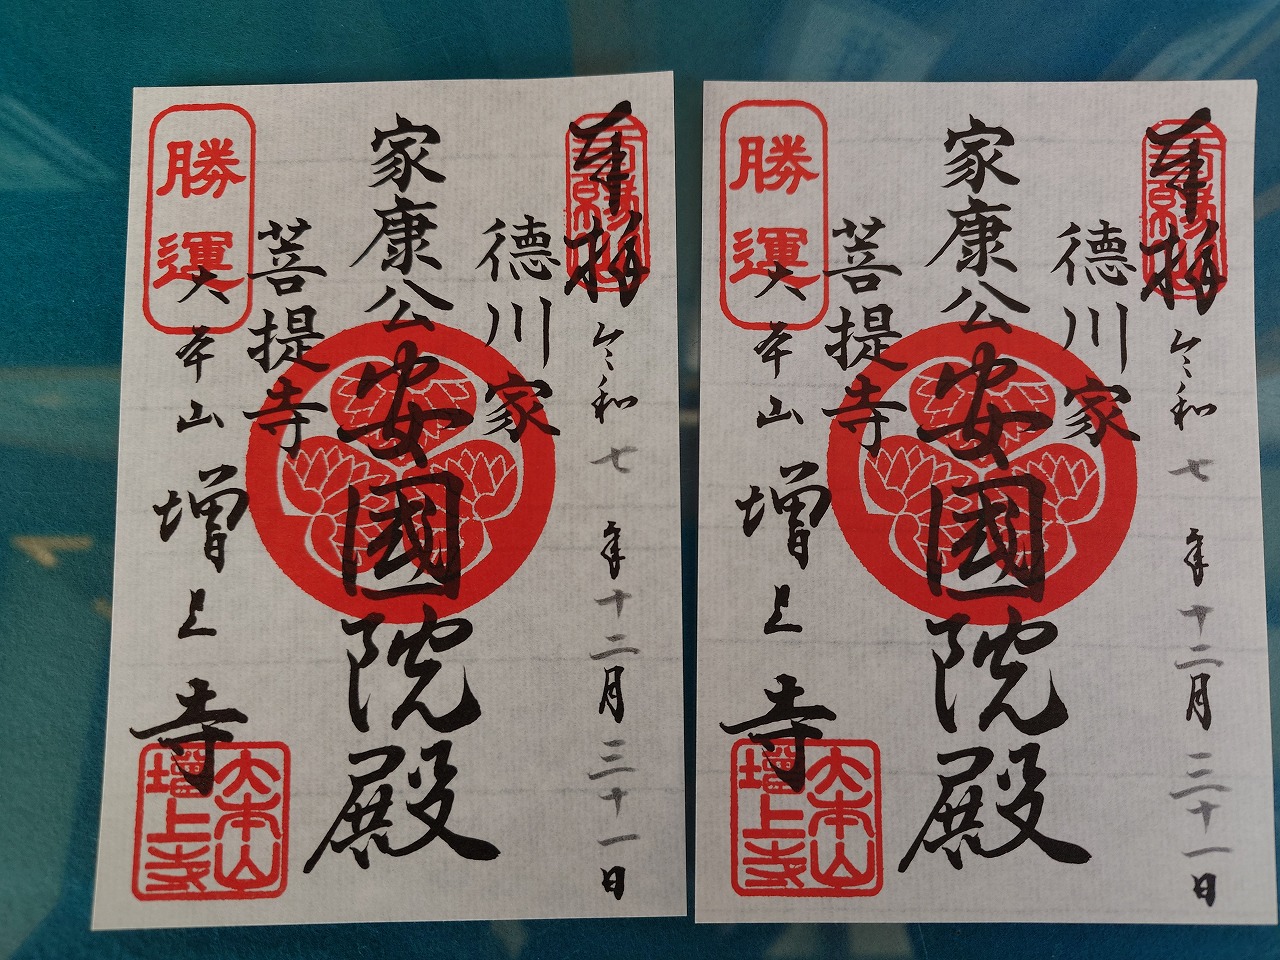 奉拝
令和七年十二月三十一日
徳川家
家康公
安國院殿
菩提寺
勝運
大本山
増上寺
大本山
増上寺
奉拝
令和七年十二月三十一日
徳川家
家康公
安國院殿
菩提寺
勝運
大本山
増上寺
大本山
増上寺